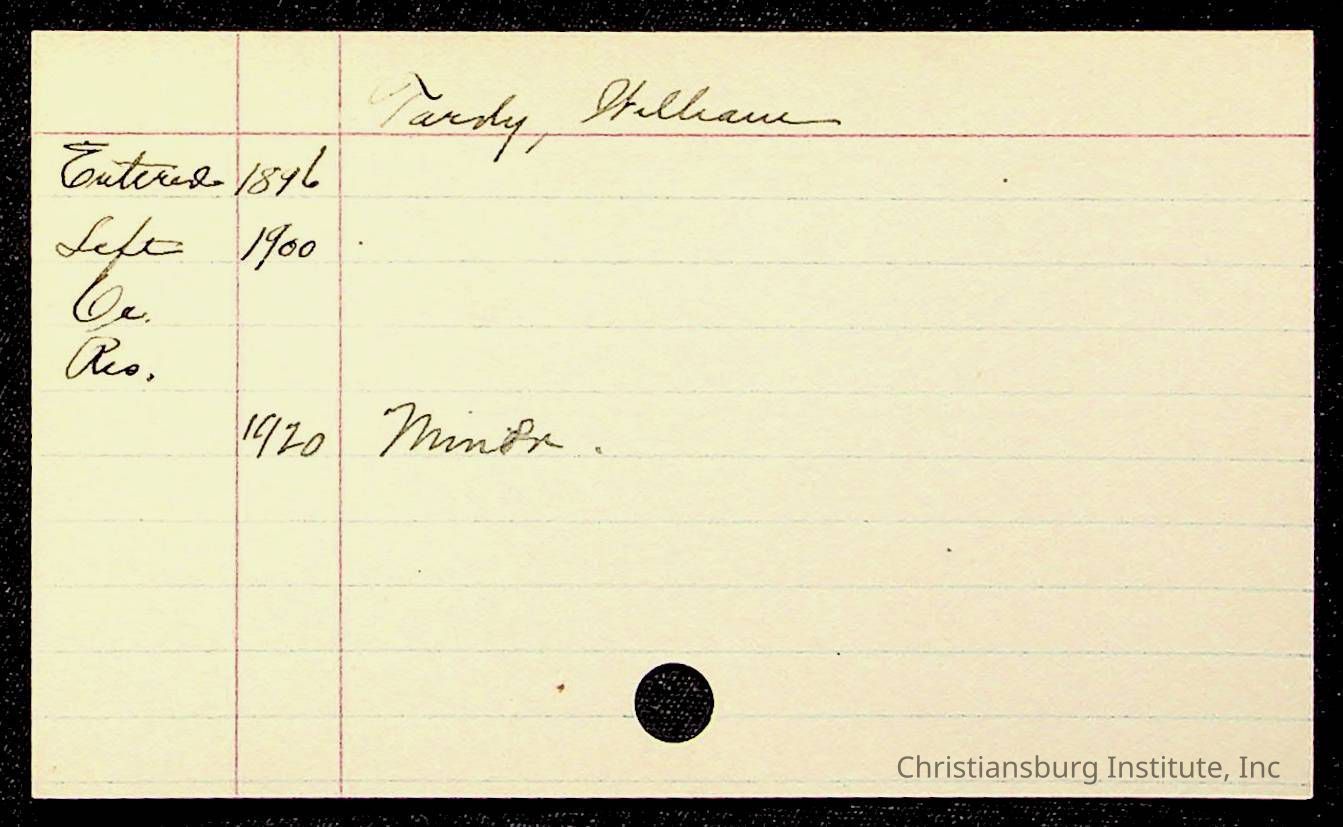 Tardy, William
Entered 1896
Left 1900
Oc.
Res.
1920 Minor.
Christiansburg Institute, Inc